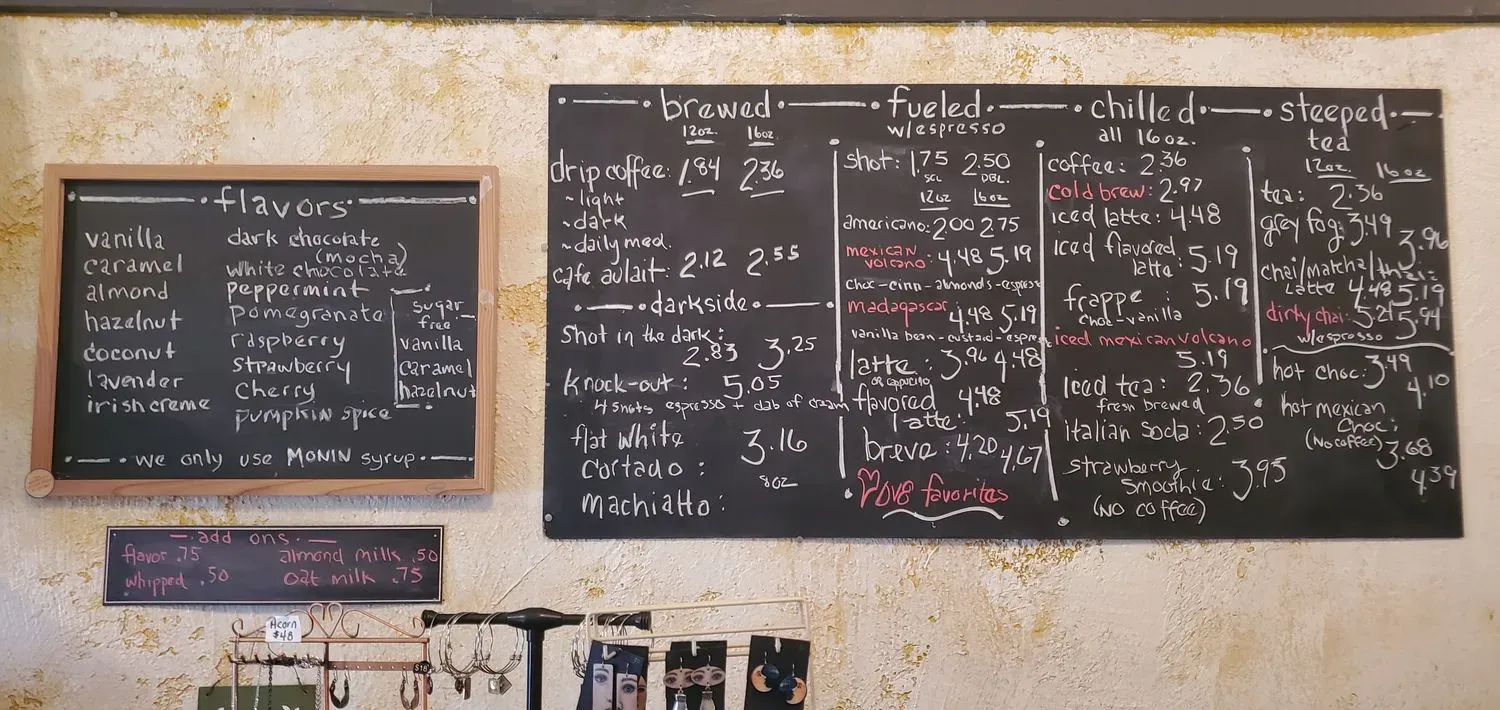 flavors
vanilla
caramel
almond
hazelnut
coconut
lavender
irish creme
dark chocolate
(mocha)
white chocolate
peppermint
pomegranate
raspberry
strawberry
cherry
pumpkin spice
sugar
free
vanilla
caramel
hazelnut
we only use MONIN syrup
add ons
flavor .75 almond milk .50
whipped .50 oat milk .75
Acorn
$48
$18
brewed
12oz. 16oz.
drip coffee: 1.84 2.36
~light
~dark
~daily med.
cafe aulait: 2.12 2.55
darkside
Shot in the dark:
2.83 3.25
Knock-out: 5.05
4 shots espresso + dab of cream
flat white 3.16
Cortado:
8oz
Machiatto:
fueled
w/espresso
shot: 1.75 2.50
SGL DBL.
12oz 16oz
americano: 2.00 2.75
mexican
volcano: 4.48 5.19
choc-cinn-almonds-espress
madagascar 4.48 5.19
vanilla bean-custard-espress
latte: 3.96 4.48
or cappucino
flavored 4.48
latte: 5.19
breve: 4.20 4.67
love favorites
chilled
all 16oz.
coffee: 2.36
cold brew: 2.97
iced latte: 4.48
iced flavored
latte: 5.19
frappe: 5.19
choc-vanilla
iced mexican volcano
5.19
Iced tea: 2.36
fresh brewed
Italian Soda: 2.50
strawberry
Smoothie: 3.95
(NO coffee)
steeped
tea
12oz. 16oz
tea: 2.36
grey fog: 3.49 3.96
chai/matcha/thai:
Latte 4.48 5.19
dirty chai: 5.21 5.94
w/espresso
hot choc: 3.49
4.10
hot mexican
choc:
(No coffee) 3.68
4.39